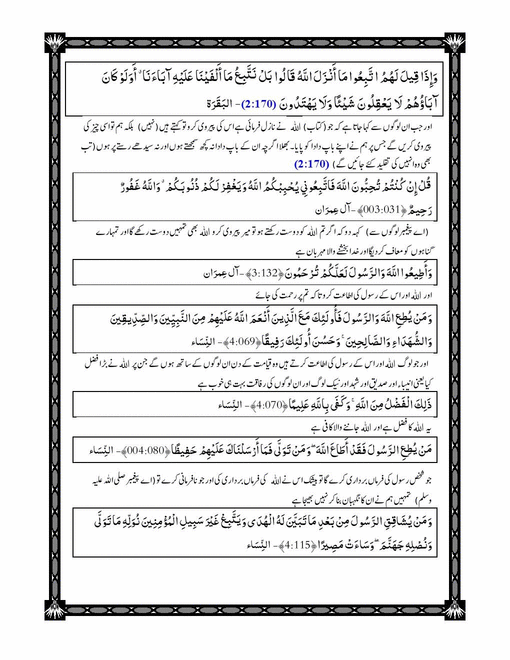 وَإِذَا قِيلَ لَهُمُ اتَّبِعُوا مَا أَنْزَلَ اللَّهُ قَالُوا بَلْ نَتَّبِعُ مَا أَلْفَيْنَا عَلَيْهِ آبَاءَنَا ۗ أَوَلَوْ كَانَ
آبَاؤُهُمْ لَا يَعْقِلُونَ شَيْئًا وَلَا يَهْتَدُونَ (2:170)- البَقَرَة
اور جب ان لوگوں سے کہا جاتا ہے کہ جو (کتاب) الله نے نازل فرمائی ہے اس کی پیروی کرو تو کہتے ہیں (نہیں) بلکہ ہم تو اسی چیز کی
پیروی کریں گے جس پر ہم نے اپنے باپ دادا کو پایا۔ بھلا اگرچہ ان کے باپ دادا نہ کچھ سمجھتے ہوں اور نہ سیدھے رستے پر ہوں (تب
بھی وہ انہیں کی تقلید کئے جائیں گے) (2:170)
قُلْ إِنْ كُنْتُمْ تُحِبُّونَ اللَّهَ فَاتَّبِعُونِي يُحْبِبْكُمُ اللَّهُ وَيَغْفِرْ لَكُمْ ذُنُوبَكُمْ ۗ وَاللَّهُ غَفُورٌ
رَحِيمٌ ﴿003:031﴾- آل عِمرَان
(اے پیغمبر لوگوں سے) کہہ دو کہ اگر تم الله کو دوست رکھتے ہو تو میر پیروی کرو الله بھی تمہیں دوست رکھے گا اور تمہارے
گناہوں کو معاف کر دیگا اور خدا بخشنے والا مہربان ہے
وَأَطِيعُوا اللَّهَ وَالرَّسُولَ لَعَلَّكُمْ تُرْحَمُونَ ﴿3:132﴾- آل عِمرَان
اور الله اور اس کے رسول کی اطاعت کرو تا کہ تم پر رحمت کی جائے
وَمَنْ يُطِعِ اللَّهَ وَالرَّسُولَ فَأُولَٰئِكَ مَعَ الَّذِينَ أَنْعَمَ اللَّهُ عَلَيْهِمْ مِنَ النَّبِيِّينَ وَالصِّدِّيقِينَ
وَالشُّهَدَاءِ وَالصَّالِحِينَ ۚ وَحَسُنَ أُولَٰئِكَ رَفِيقًا ﴿4:069﴾- النِّسَاء
اور جو لوگ الله اور اس کے رسول کی اطاعت کرتے ہیں وہ قیامت کے دن ان لوگوں کے ساتھ ہوں گے جن پر الله نے بڑا فضل
کیا یعنی انبیاء اور صدیق اور شہداور نیک لوگ اور ان لوگوں کی رفاقت بہت ہی خوب ہے
ذَٰلِكَ الْفَضْلُ مِنَ اللَّهِ ۚ وَكَفَىٰ بِاللَّهِ عَلِيمًا ﴿4:070﴾- النِّسَاء
یہ الله کا فضل ہے اور الله جاننے والا کافی ہے
مَنْ يُطِعِ الرَّسُولَ فَقَدْ أَطَاعَ اللَّهَ ۖ وَمَنْ تَوَلَّىٰ فَمَا أَرْسَلْنَاكَ عَلَيْهِمْ حَفِيظًا ﴿004:080﴾- النِّسَاء
جو شخص رسول کی فرماں برداری کرے گا تو بیشک اس نے الله کی فرماں برداری کی اور جو نافرمانی کرے تو (اے پیغمبر صلی الله علیہ
وسلم) تمہیں ہم نے ان کا نگہبان بنا کر نہیں بھیجا ہے
وَمَنْ يُشَاقِقِ الرَّسُولَ مِنْ بَعْدِ مَا تَبَيَّنَ لَهُ الْهُدَىٰ وَيَتَّبِعْ غَيْرَ سَبِيلِ الْمُؤْمِنِينَ نُوَلِّهِ مَا تَوَلَّىٰ
وَنُصْلِهِ جَهَنَّمَ ۖ وَسَاءَتْ مَصِيرًا ﴿4:115﴾- النِّسَاء